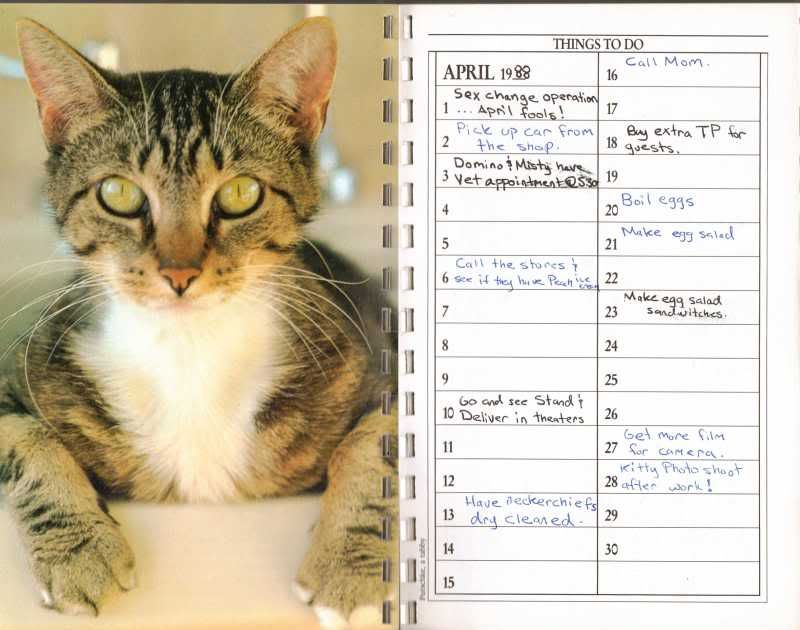 THINGS TO DO
APRIL 1988
1 Sex change operation
... April fools!
2 Pick up car from
the shop.
3 Domino & Misty have
Vet appointment @ 5:30
4
5
6 Call the stores &
see if they have Peach ice cream
7
8
9
10 Go and see Stand &
Deliver in theaters
11
12
13 Have Neckerchiefs
dry cleaned.
14
15
16 Call Mom.
17
18 Buy extra TP for
guests.
19
20 Boil eggs
21 Make egg salad
22
23 Make egg salad
sandwitches.
24
25
26
27 Get more film
for camera.
28 Kitty Photo shoot
after work!
29
30
a tabby